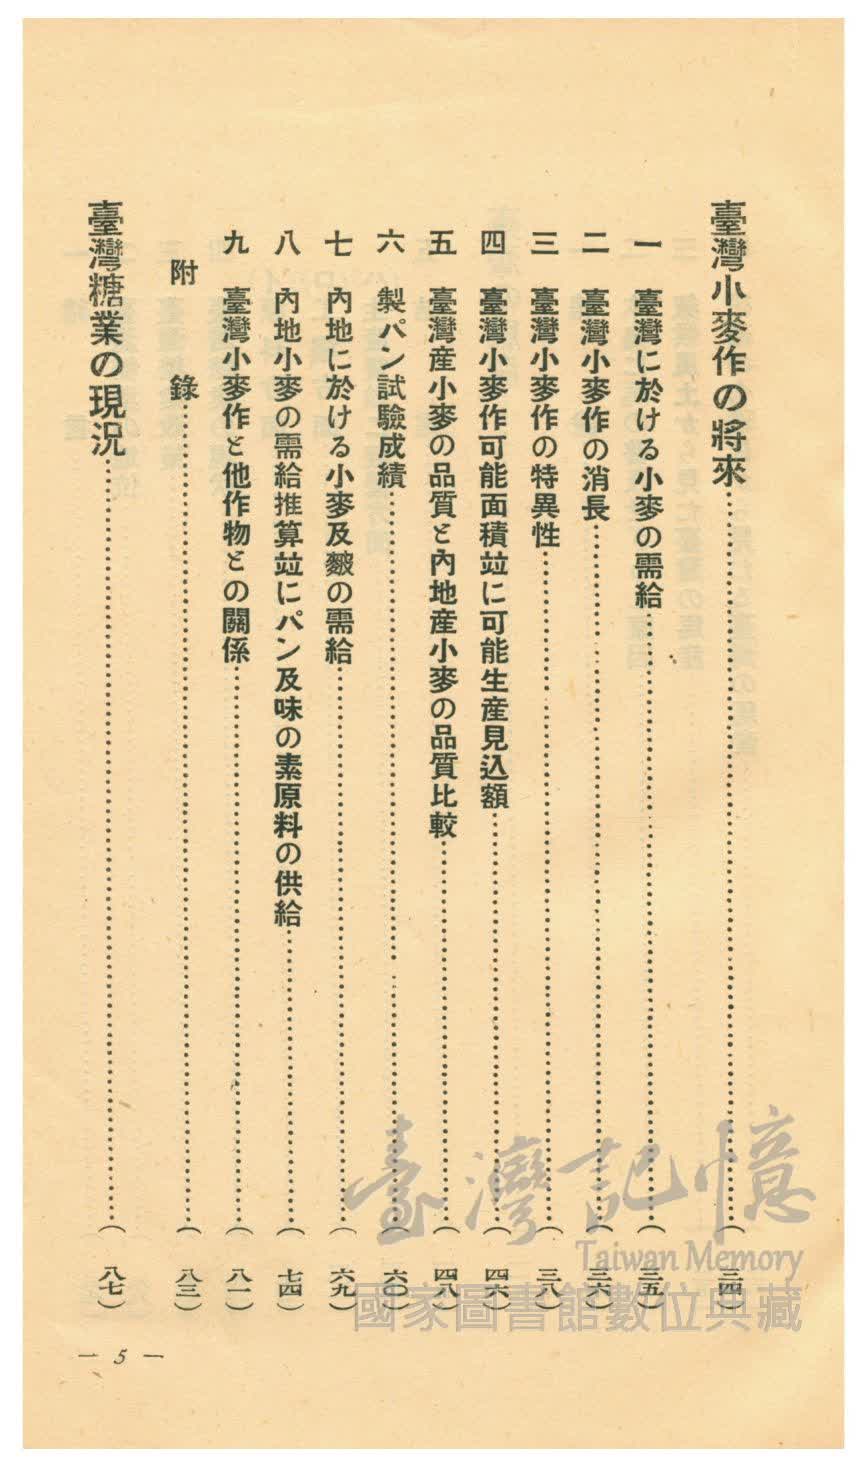 臺灣小麥作の將來……………(三四)
一 臺灣に於ける小麥の需給……………(三五)
二 臺灣小麥作の消長……………(三六)
三 臺灣小麥作の特異性……………(三八)
四 臺灣小麥作可能面積竝に可能生産見込額……………(四六)
五 臺灣産小麥の品質と內地産小麥の品質比較……………(四八)
六 製パン試驗成績……………(六〇)
七 內地に於ける小麥及麬の需給……………(六九)
八 內地小麥の需給推算竝にパン及味の素原料の供給……………(七四)
九 臺灣小麥作と他作物との關係……………(八一)
附錄……………(八三)
臺灣糖業の現況……………(八七)
— 5 —
臺灣記憶
Taiwan Memory
國家圖書館數位典藏